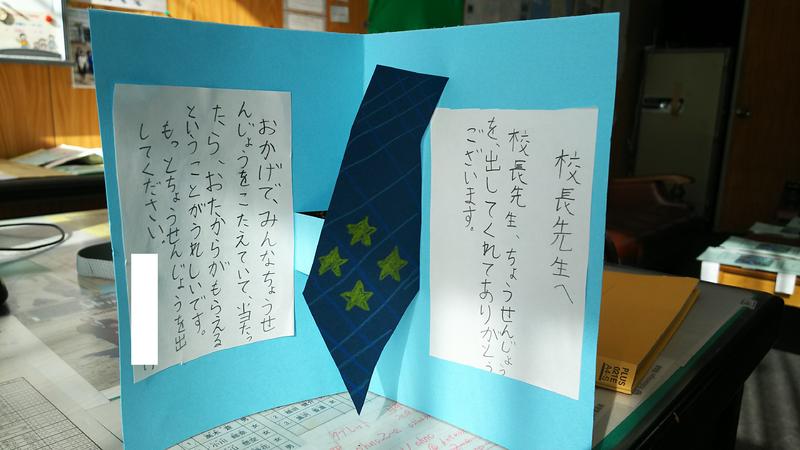 校長先生へ
校長先生、ちょうせんじょう
を、出してくれてありがとう
ございます。
おかげで、みんなちょうせ
んじょうをこたえていて、当たっ
たら、おたからがもらえる
ということがうれしいです。
もっとちょうせんじょうを出
してください。
PLUS